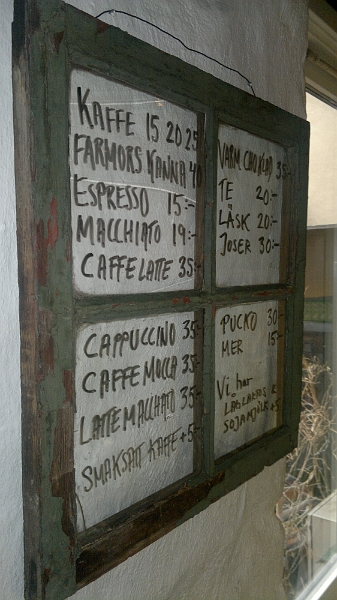 KAFFE 15 20 25
FARMORS KANNA 40
ESPRESSO 15:-
MACCHIATO 19:-
CAFFE LATTE 35:-
VARM CHOKLAD 35:-
TE 20:-
LÄSK 20:-
JOSER 30:-
CAPPUCCINO 35:-
CAFFE MOCCA 35:-
LATTE MACCHIATO 35:-
SMAKSATT KAFFE +5:-
PUCKO 30:-
MER 15:-
Vi har
LÅGLAKTOS &
SOJAMJÖLK +5